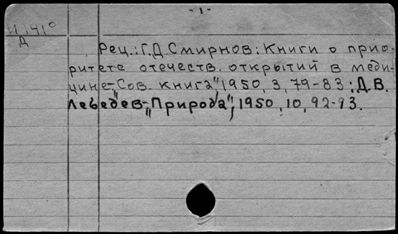 - 1 -
И 1410
Д
Рец.: Г.Д. Смирнов: Книги о прио-
ритете отечеств. открытий в меди-
цине-„Сов. книга" 1950, 3, 79-83; Д.В.
Лебедев-„Природа", 1950, 10, 92-93.